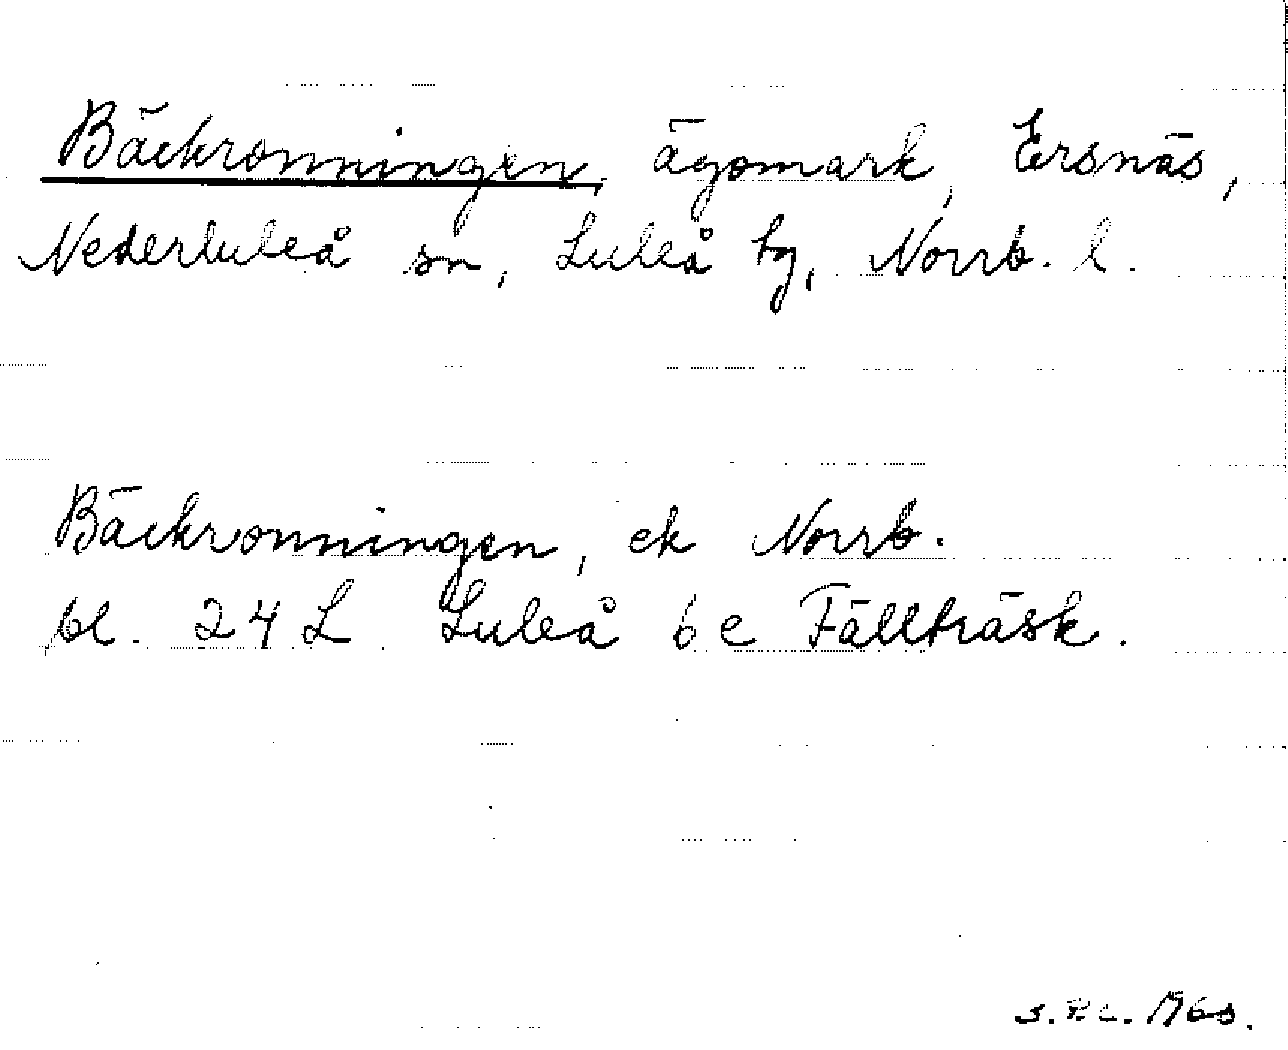 Bäckronningen, ägomark, Ersnäs,
Nederluleå sn, Luleå tg, Norrb. l.
Bäckronningen, ek Norrb.
bl. 24 L Luleå 6 e Fällträsk.